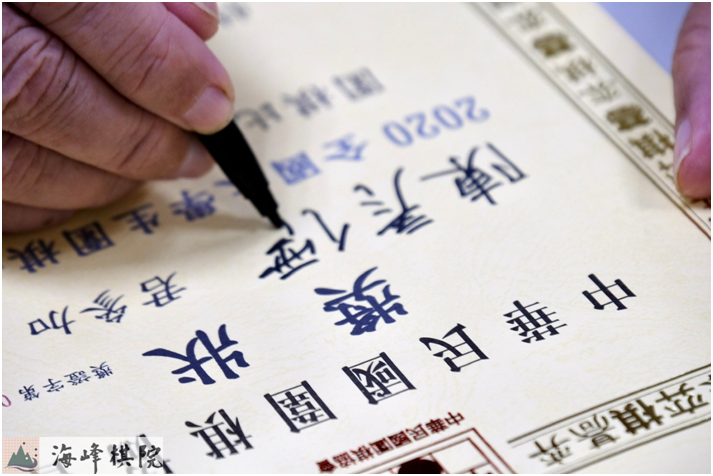 中華民國圍棋
獎狀
獎證字第0
陳
君參加
2020 全國大學生圍棋
圍棋比
中華民國圍棋協會
海峰棋院